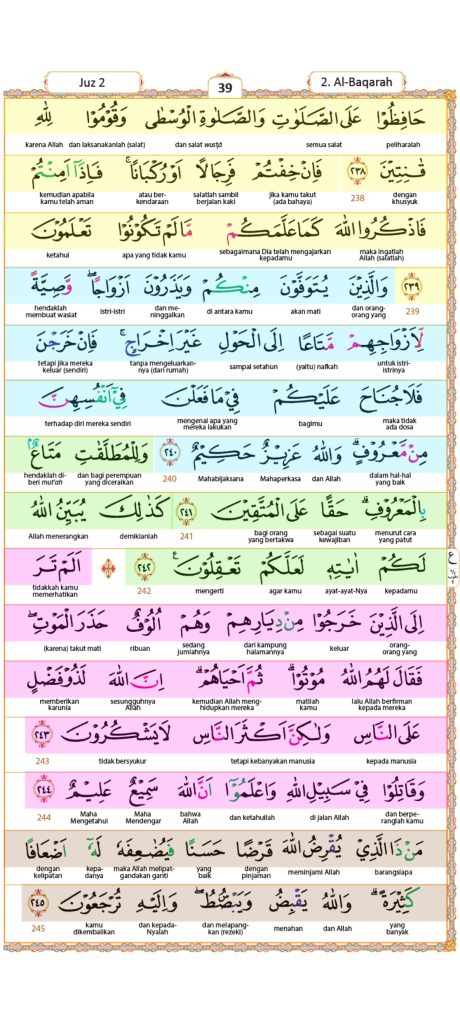 Juz 2
39
2. Al-Baqarah
حَافِظُوْا عَلَى الصَّلَوٰتِ وَالصَّلٰوةِ الْوُسْطٰى وَقُوْمُوْا لِلّٰهِ
peliharalah semua salat dan salat wusṭā dan laksanakanlah (salat) karena Allah
قٰنِتِيْنَ ٢٣٨ فَاِنْ خِفْتُمْ فَرِجَالًا اَوْ رُكْبَانًا ۚ فَاِذَآ اَمِنْتُمْ
dengan khusyuk 238 jika kamu takut (ada bahaya) salatlah sambil berjalan kaki atau ber-kendaraan kemudian apabila kamu telah aman
فَاذْكُرُوا اللّٰهَ كَمَا عَلَّمَكُمْ مَّا لَمْ تَكُوْنُوْا تَعْلَمُوْنَ
maka ingatlah Allah (salatlah) sebagaimana Dia telah mengajarkan kepadamu apa yang tidak kamu ketahui
٢٣٩ وَالَّذِيْنَ يُتَوَفَّوْنَ مِنْكُمْ وَيَذَرُوْنَ اَزْوَاجًاۖ وَّصِيَّةً
239 dan orang-orang yang akan mati di antara kamu dan me-ninggalkan istri-istri hendaklah membuat wasiat
لِّاَزْوَاجِهِمْ مَّتَاعًا اِلَى الْحَوْلِ غَيْرَ اِخْرَاجٍ ۚ فَاِنْ خَرَجْنَ
untuk istri-istrinya (yaitu) nafkah sampai setahun tanpa mengeluarkan-nya (dari rumah) tetapi jika mereka keluar (sendiri)
فَلَا جُنَاحَ عَلَيْكُمْ فِيْ مَا فَعَلْنَ فِيْٓ اَنْفُسِهِنَّ
maka tidak ada dosa bagimu mengenai apa yang mereka lakukan terhadap diri mereka sendiri
مِنْ مَّعْرُوْفٍۗ وَاللّٰهُ عَزِيْزٌ حَكِيْمٌ ٢٤٠ وَلِلْمُطَلَّقٰتِ مَتَاعٌ ۢ
dalam hal-hal yang baik dan Allah Mahaperkasa Mahabijaksana 240 dan bagi perempuan yang diceraikan hendaklah di-beri mut'ah
بِالْمَعْرُوْفِۗ حَقًّا عَلَى الْمُتَّقِيْنَ ٢٤١ كَذٰلِكَ يُبَيِّنُ اللّٰهُ
menurut cara yang patut sebagai suatu kewajiban bagi orang yang bertakwa 241 demikianlah Allah menerangkan
لَكُمْ اٰيٰتِهٖ لَعَلَّكُمْ تَعْقِلُوْنَ ࣖ ٢٤٢ ۞ اَلَمْ تَرَ
kepadamu ayat-ayat-Nya agar kamu mengerti 242 tidakkah kamu memerhatikan
اِلَى الَّذِيْنَ خَرَجُوْا مِنْ دِيَارِهِمْ وَهُمْ اُلُوْفٌ حَذَرَ الْمَوْتِۖ
orang-orang yang keluar dari kampung halamannya sedang jumlahnya ribuan (karena) takut mati
فَقَالَ لَهُمُ اللّٰهُ مُوْتُوْاۗ ثُمَّ اَحْيَاهُمْ ۗ اِنَّ اللّٰهَ لَذُوْ فَضْلٍ
lalu Allah berfirman kepada mereka matilah kamu kemudian Allah meng-hidupkan mereka sesungguhnya Allah memberikan karunia
عَلَى النَّاسِ وَلٰكِنَّ اَكْثَرَ النَّاسِ لَا يَشْكُرُوْنَ ٢٤٣
kepada manusia tetapi kebanyakan manusia tidak bersyukur 243
وَقَاتِلُوْا فِيْ سَبِيْلِ اللّٰهِ وَاعْلَمُوْٓا اَنَّ اللّٰهَ سَمِيْعٌ عَلِيْمٌ ٢٤٤
dan berpe-ranglah kamu di jalan Allah dan ketahuilah bahwa Allah Maha Mendengar Maha Mengetahui 244
مَنْ ذَا الَّذِيْ يُقْرِضُ اللّٰهَ قَرْضًا حَسَنًا فَيُضٰعِفَهٗ لَهٗٓ اَضْعَافًا
barangsiapa meminjami Allah dengan pinjaman yang baik maka Allah melipat-gandakan ganti kepa-danya dengan kelipatan
كَثِيْرَةً ۗ وَاللّٰهُ يَقْبِضُ وَيَبْصُۣطُۖ وَاِلَيْهِ تُرْجَعُوْنَ ٢٤٥
yang banyak dan Allah menahan dan melapang-kan (rezeki) dan kepada-Nyalah kamu dikembalikan 245